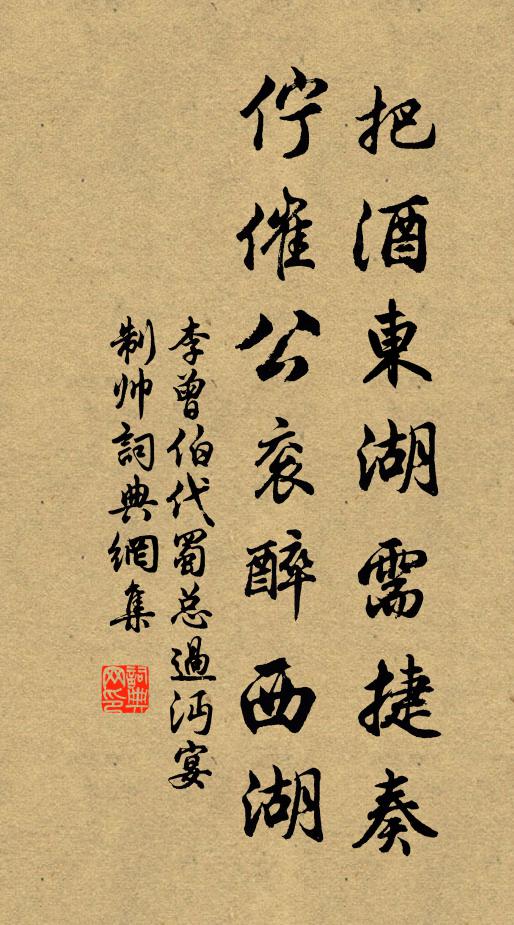 把酒東湖需捷奏
佇催公衮醉西湖
李曾伯代蜀总過沔宴
制帅詞典網集
詞典
网印